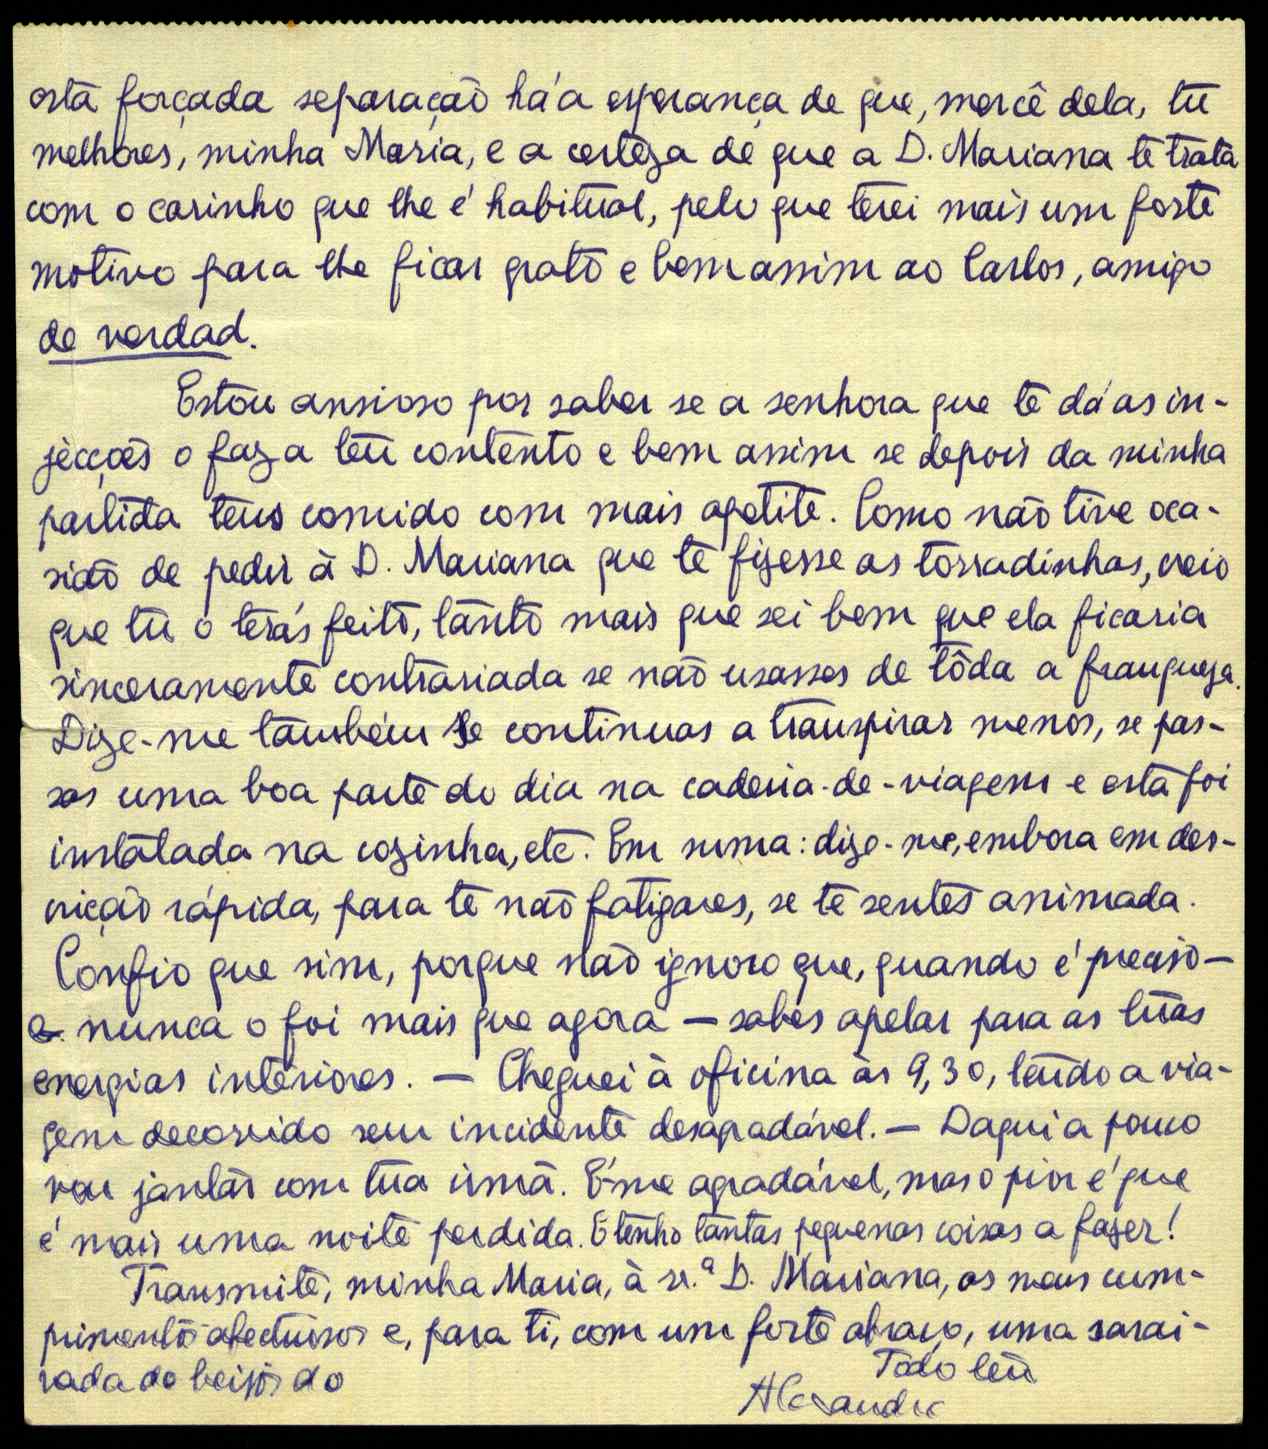 esta forçada separação há a esperança de que, mercê dela, tu
melhores, minha Maria, e a certeza de que a D. Mariana te trata
com o carinho que lhe é habitual, pelo que terei mais um forte
motivo para lhe ficar grato e bem assim ao Carlos, amigo
de verdad.
Estou ansioso por saber se a senhora que te dá as in-
jecções o faz a teu contento e bem assim se depois da minha
partida tens comido com mais apetite. Como não tive oca-
sião de pedir à D. Mariana que te fizesse as torradinhas, creio
que tu o terás feito, tanto mais que sei bem que ela ficaria
sinceramente contrariada se não usasses de tôda a franqueza.
Dize-me também se continuas a transpirar menos, se pas-
sas uma boa parte do dia na cadeira-de-viagem e esta foi
instalada na cozinha, etc. Em suma: dize-me, embora em des-
crição rápida, para te não fatigares, se te sentes animada.
Confio que sim, porque não ignoro que, quando é preciso –
e nunca o foi mais que agora – sabes apelar para as tuas
energias interiores. — Cheguei à oficina às 9,30, tendo a via-
gem decorrido sem incidente desagradável. — Daqui a pouco
vou jantar com tua irmã. É-me agradável, mas o pior é que
é mais uma noite perdida. E tenho tantas pequenas coisas a fazer!
Transmite, minha Maria, à sr.ª D. Mariana, os meus cum-
primentos afectuosos e, para ti, com um forte abraço, uma sarai-
vada de beijos do
Todo teu
Alexandre